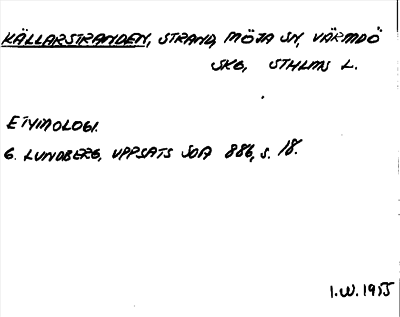 KÄLLARSTRANDEN, STRAND, MÖJA SN, VÄRMDÖ
SKG, STHLMS L.
ETYMOLOGI.
G. LUNDBERG, UPPSATS SOA 886, s. 18.
I.W. 1955